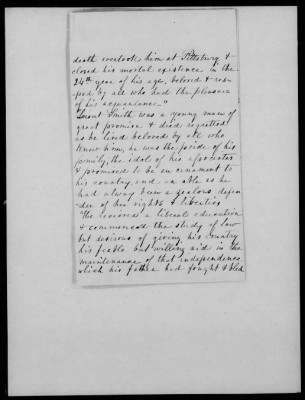 death overtook him at Pittsburg &
closed his mortal existence in the
24th year of his age, beloved &
by all who had the pleasure
of his acquaintance."
Smith was a young man of
great promise & died regretted
as he lived beloved by all who
knew him, he was the pride of his
family, the idol of his associates
& promised to be an ornament to
his country, and as he
had always been a zealous defen-
der of her rights & liberties
He received a liberal education
& commenced the study of law
but desirous of giving his country
his feeble but willing aid in the
maintenance of that independence
which his father had fought & bled